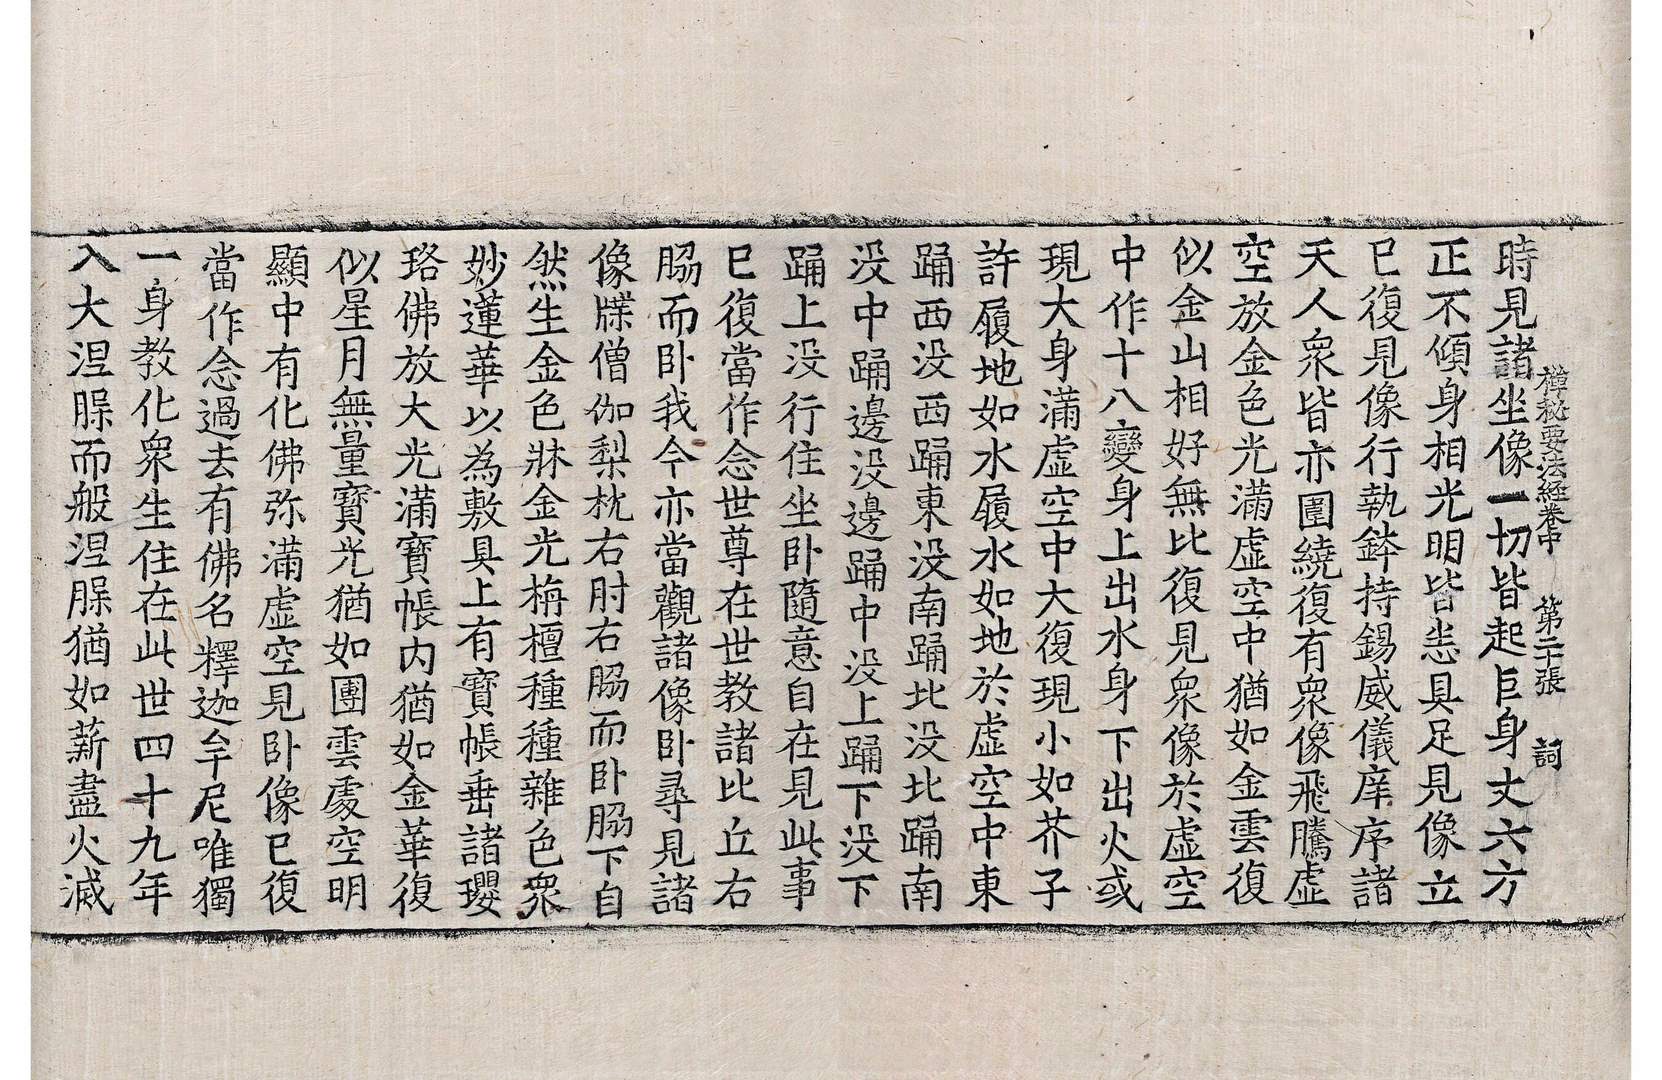 禪秘要法經卷中　第二十張　詞
時見諸坐像一切皆起巨身丈六方
正不傾身相光明皆悉具足見像立
已復見像行執鉢持錫威儀庠序諸
天人衆皆亦圍繞復有衆像飛騰虛
空放金色光滿虛空中猶如金雲復
似金山相好無比復見衆像於虛空
中作十八變身上出水身下出火或
現大身滿虛空中大復現小如芥子
許履地如水履水如地於虛空中東
踊西没西踊東没南踊北没北踊南
没中踊邊没邊踊中没上踊下没下
踊上没行住坐卧隨意自在見此事
已復當作念世尊在世教諸比丘右
脇而卧我今亦當觀諸像卧尋見諸
像牒僧伽梨枕右肘右脇而卧脇下自
然生金色牀金光栴檀種種雜色衆
妙蓮華以為敷具上有寶帳垂諸瓔
珞佛放大光滿寶帳内猶如金華復
似星月無量寶光猶如團雲處空明
顯中有化佛弥滿虛空見卧像已復
當作念過去有佛名釋迦牟尼唯獨
一身教化衆生住在此世四十九年
入大涅槃而般涅槃猶如薪盡火滅